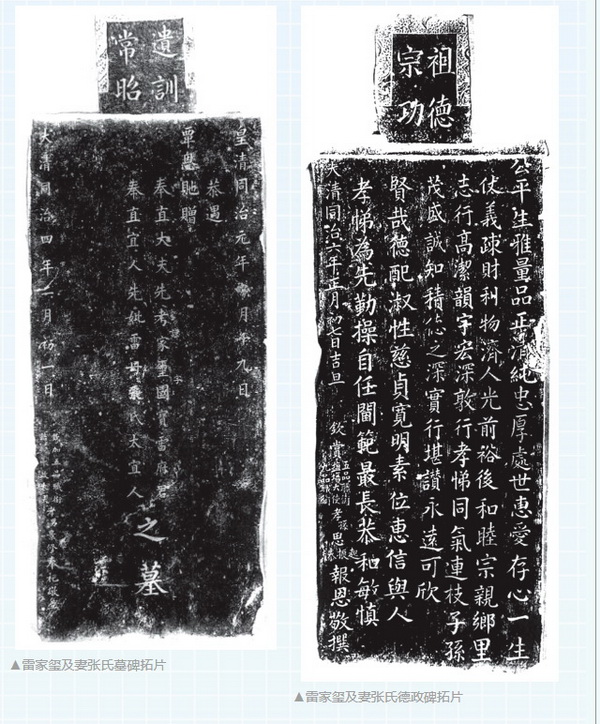 遺訓
常昭
皇清同治元年 月 九日
恭遇
覃恩馳贈
奉直大夫先考家璽國寶雷府君
奉直宜人先妣雷母張氏太宜人
之墓
大清同治四年 月初一日
祖德
宗功
公平生雅量品 清純忠厚處世惠愛存心一生
仗義疎財利物濟人光前裕後和睦宗親鄉里
志行高潔韻宇宏深敦行孝悌同氣連枝子孫
茂盛誠知積 之深實行堪讚永遠可欣
賢哉德配淑性慈貞寬明素位惠信與人
孝悌為先勤操自任閫範最長恭和敏慎
大清同治六年正月初七日吉旦
欽賞五品 孝 思起 報恩敬撰
▲雷家玺及妻张氏墓碑拓片
▲雷家玺及妻张氏德政碑拓片